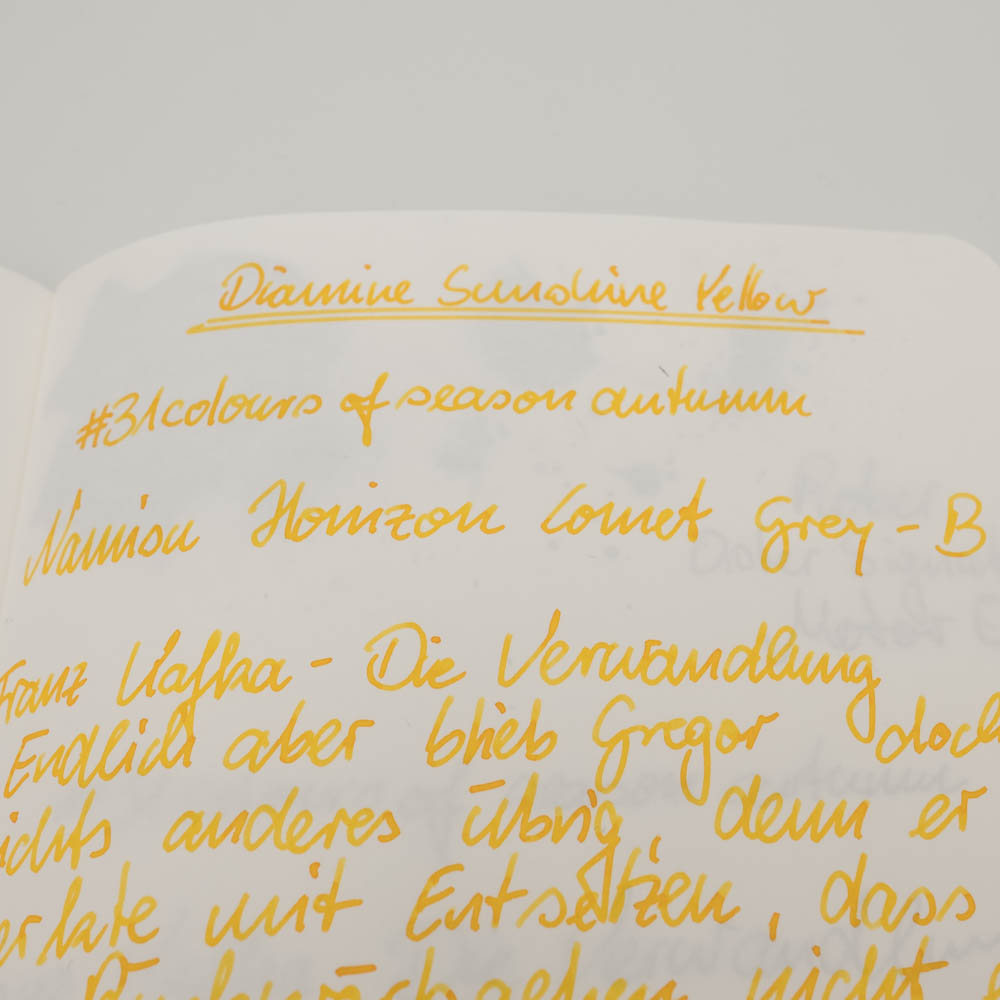 Diamine Sunshine Yellow
#31colours of season autumn
Namisu Horizon Comet Grey - B
Franz Kafka - Die Verwandlung
Endlich aber blieb Gregor doch
nichts anderes übrig, denn er
merkte mit Entsetzen, dass
nicht